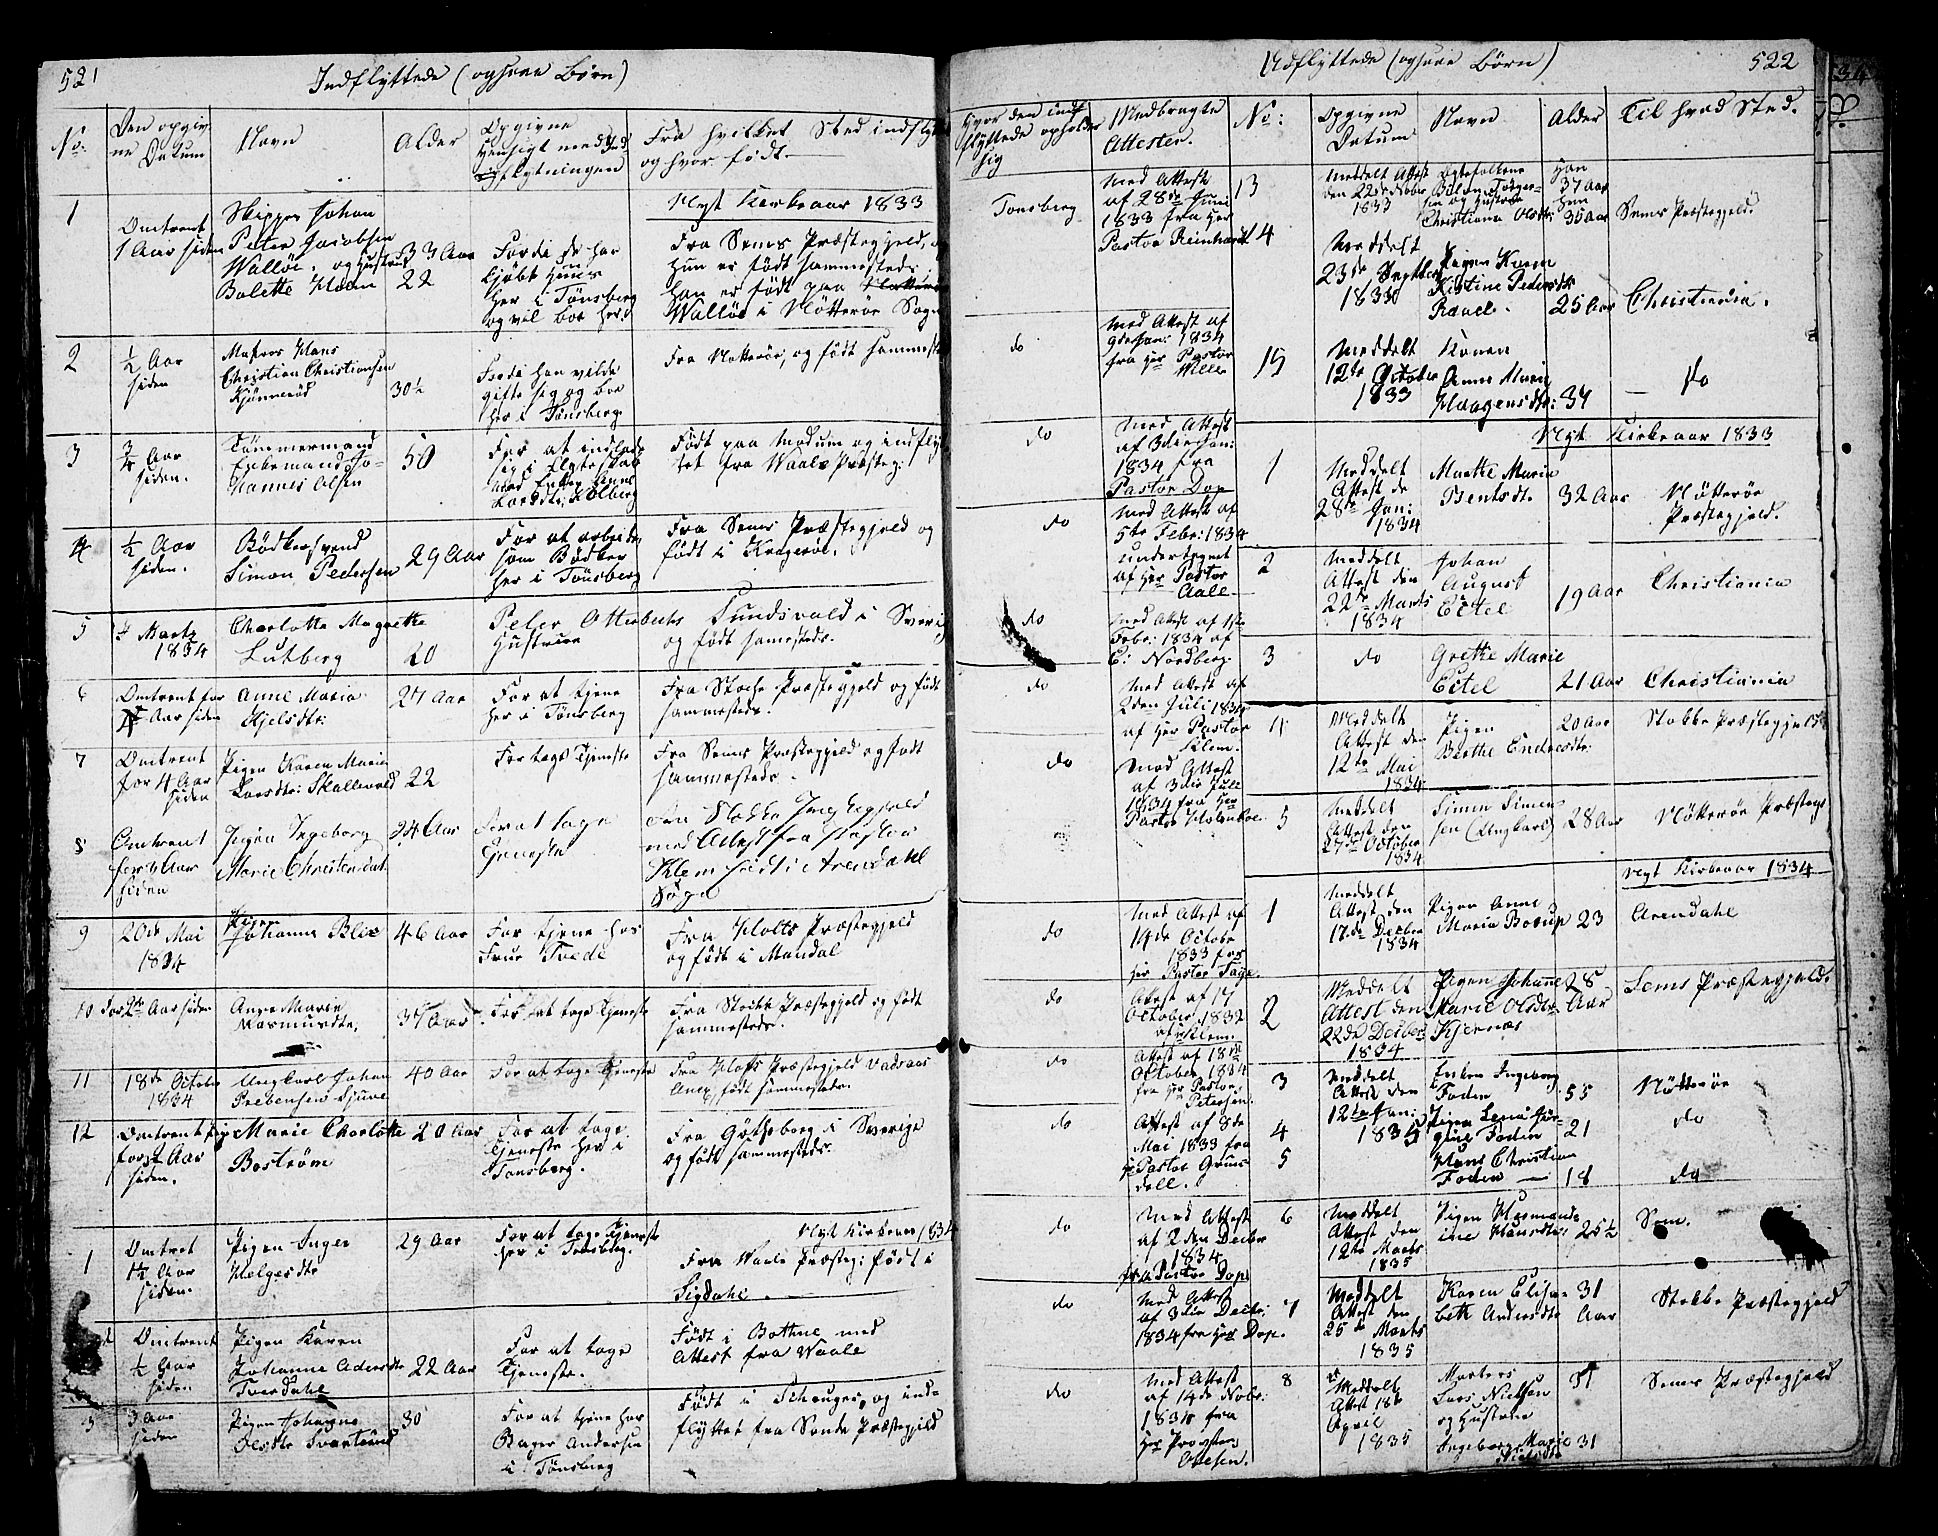 521
Indflyttede (ogsaae Børn)
No:
Den opgiv-
ne Datum
Navn
Alder
Opgivne
Hensigt med Ind-
flytningen
Fra hvilket Sted indflyt
og hvor født.
Nyt Kirkeaar 1833
1
Omtrent
1 Aar siden
Skipper Johan
Peter Jacobsen
Walløe, og Hustrue
Bolette Holm
33 Aar
22
Fordi de har
kjøbt Huus
her i Tønsberg
og vil boe her.
Fra Sems Præstegjeld,
Hun er født sammesteds
Han er født paa
Walløe i Nøtterøe Sogn
2
1/2 Aar
siden
Matros Hans
Christian Christiansen
Kjønnerød
30 1/2
Fordi han vilde
gifte sig og boe
her i Tønsberg.
Fra Nøtterøe, og født sammest
3
3/4 Aar
siden.
Tømmermand
Enkemand Jo-
hannes Olsen
50
For at indlade
sig i Ægteskab
med Enken Anne
Larsdtr: Kolberg
Født paa Modum og indfly
tet fra Waale Præsteg:
4
1/2 Aar
siden.
Bødkersvend
Simon Pedersen
29 Aar
For at arbeide
som Bødker
her i Tønsberg
Fra Sems Præstegjeld og
født i Kragerøe.
5
4 Marts
1834
Charlotta Magrethe
Lutberg
20
Peter Otterbechs
Hustrue
Sundsvald i Sverig
og født sammesteds.
6
Omtrent for
Aar siden
Anne Maria
Kjelsdtr:
27 Aar
For at tjene
her i Tønsberg
Fra Stocke Præstegjeld og født
sammesteds.
7
Omtrent
for 4 Aar
siden
Pigen Karen Marie
Larsdtr: Skallevold
22
For tage Tjeneste
Fra Sems Præstegjeld og født
sammesteds.
8
Omtrent
for Aar
siden
Pigen Ingeborg
Marie Christensdat.
24 Aar
For at tage
Tjeneste
Fra Stokke Præstegjeld
med Attest fra Pastor
Klem født i Arendahl
Sogn
9
20de Mai
1834
Pigen
Johanne Blix
46 Aar
For tjene hos
Frue Tvede
Fra Holts Præstegjeld
og født i Mandal
10
for 2de Aar siden
Anne Marie
Rasmusdtr,
34 Aar
For at tage Tjeneste
Fra Stokke Præstegjeld og født
sammesteds.
11
18de Octobr
1834
Ungkarl Johan
Prebensen Djuve
40 Aar
For at tage Tjeneste
Fra Holts Præstegjeld Vadsaas
Anex, født sammesteds.
12
Omtrent
for 2 Aar
siden.
Marie Charlotte
Bostrøm
20 Aar
For at tage
Tjeneste her i
Tønsberg.
Fra Gøtheborg i Sverige
og født sammesteds.
Nyt Kirkeaar 1834
1
Omtret
1 1/2 Aar
siden.
Pigen Inger
Helgesdtr
29 Aar
For at tage Tjeneste
her i Tønsberg.
Fra Waale Præsteg: født i
Sigdahl.
Omtrent
1/2 Aar
siden
Pigen Karen
Johanne Adensdtr
Tverdahl
22 Aar
For at tage
Tjeneste.
Født i Bothne med
Attest fra Waale
3
3 Aar
siden
Pigen Johanne
Olsdtr Svartsund
30
For at tjene hos
Bager Andersen
i Tønsberg
Født i Schouger, og ind-
flyttet fra Sande Præstegjeld
522
Udflyttede (ogsaae Børn)
Hvor den ind-
flyttede opholder
sig
Medbragte
Attester.
No:
Opgivne
Datum
Navn
Alder
Til hvad Sted.
Tønsberg
Med Attest
af 28de Juni
1833 fra Her
Pastor Reinhardt
13
Meddelt Attest
den 22de Novbr
1833
Ægtefolkene
Christiane Olsdtr:
Han
37 Aar
Hun
35 Aar
Sems Præstegjeld.
14
Meddelt
23de Septbr
1833
Pigen Karen
Kistine Pedersdtr
25 Aar
Christiania.
do
Med Attest af
9de Jan: 1834
fra Hr Pastor
Meller
15
Meddelt
12te October
1833
Konen
Anne Marie
Haagensdtr:
34
do
do
Med Attest
af 3die Jan:
1834 fra
Pastor Dop
Nyt Kirkeaar 1833
1
Meddelt
Attest de
28de Jan:
1834
Marthe Maria
Bentsdt.
32 Aar
Nøtterøe
Præstegjeld.
do
Med Attest af
5te Febr: 1834
undertegnet
af Her Pastor
Aale
2
Meddelt
Attest den
22de Marts
1834
Johan
August
Eitel
19 Aar
Christiania
do
Med Attest af 1ste
Febr: 1834 af
C: Nordberg.
3
do
Grethe Marie
Eitel
21 Aar
Christiania
do
Med Attest af
2den Juli 1834
af Her Pastor
Klem.
4
Meddelt
Attest den
12te Mai
1834
Pigen
Berthe Endresdtr:
20 Aar
Stokke Præstegjeld
do
Med Attest
af 3die Juli
1834 fra Her
Pastor Holmboe
5
Meddelt
Attest den
27de October
1834
Simen Simen-
sen (Ungkarl)
28 Aar
Nøtterøe Præsteg
Nyt Kirkeaar 1834
do
Med Attest af
14de Octobr
1833 fra
Her Pastor Tage.
1
Meddelt
Attest den
17de Decbr
1834
Pigen Anne
Maria Borup
23
Arendahl
do
Attest af 17
October 1832
af Klem
2
Meddelt
Attest den
22de Decbr
1834
Pigen Johanne
Marie Olsdtr
Kjernæs
28
Aar
Sems Præstegjeld.
do
Attest af 18de
October 1834
fra Hr Pastor
Petersen.
3
Meddelt
Attest den
12te Jan:
1835
Enken Ingeborg
Foden
55
Nøtterøe
do
Attest af 8de
Mai 1833 fra
Hr Pastor Grims-
dell.
4
Pigen Lena Jør-
gine Foden
21
do
5
Hans Christian
Foden
18
do
do
Med Attest
af 2den Decbr
1834
fra Pastor Dop
6
Meddelt
Attest den
12te Marts
1835
Pigen Rasmund-
ine Hansdtr:
25 1/2
Sem.
do
Med Attest
af 3die Decbr:
1834 fra Her Dop.
7
Meddelt
Attest den
25de Marts
1835
Karen Elisa-
beth Andersdtr
31
Aar
Stokke Præstegjeld
do
Med Attest
af 14de Novbr:
1834 fra
Her Provsten
Ottesen.
8
Meddelt
Attest 18de
April
1835
Lars Nielsen
og Hustrue
Ingeborg Marie
Nielsdtr
31
Sems Præstegjeld